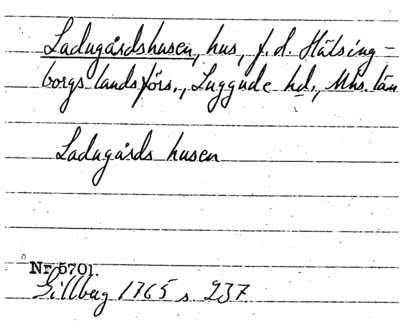 Ladugårdshusen, hus, f.d. Hälsing-
borgs landsförs., Luggude hd., Mhs. län
Ladugårds husen
Nr 5701.
Gillberg 1765 s. 237